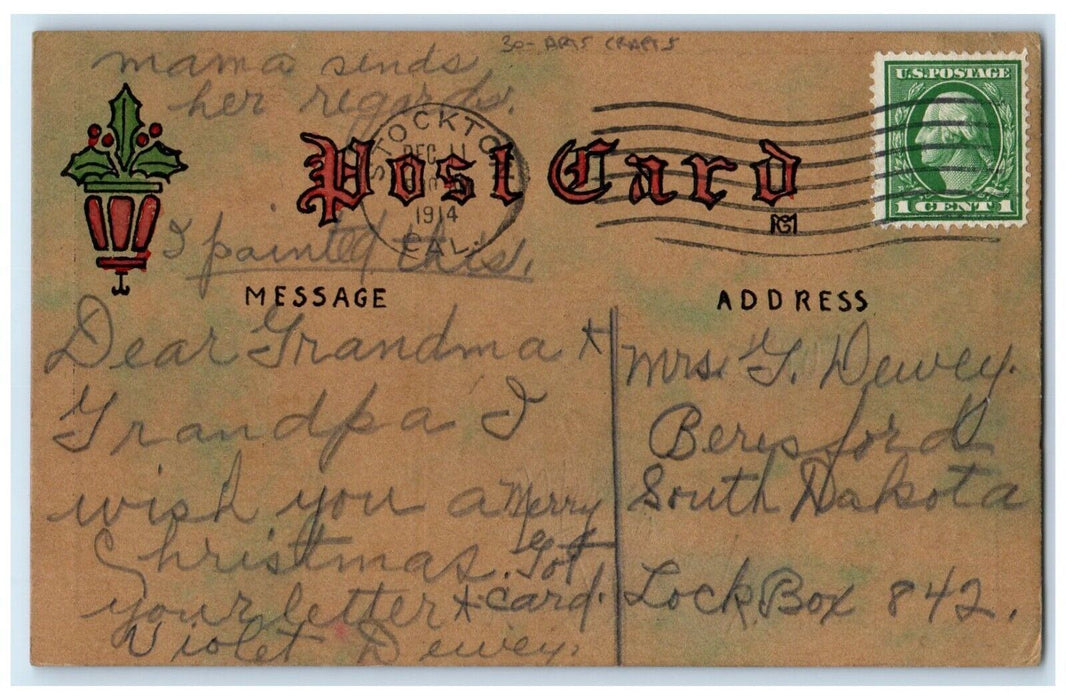 30- ARTS CRAFTS
mama sends
her regards.
U.S. POSTAGE
1 CENT 1
STOCKTON
DEC 11
1914
CAL.
Post Card
I painted this.
MESSAGE
ADDRESS
Dear Grandma +
Grandpa I
wish you a Merry
Christmas. Got
your letter + card.
Violet Dewey.
Mrs. G. Dewey.
Beresford
South Dakota
Lock Box 842.